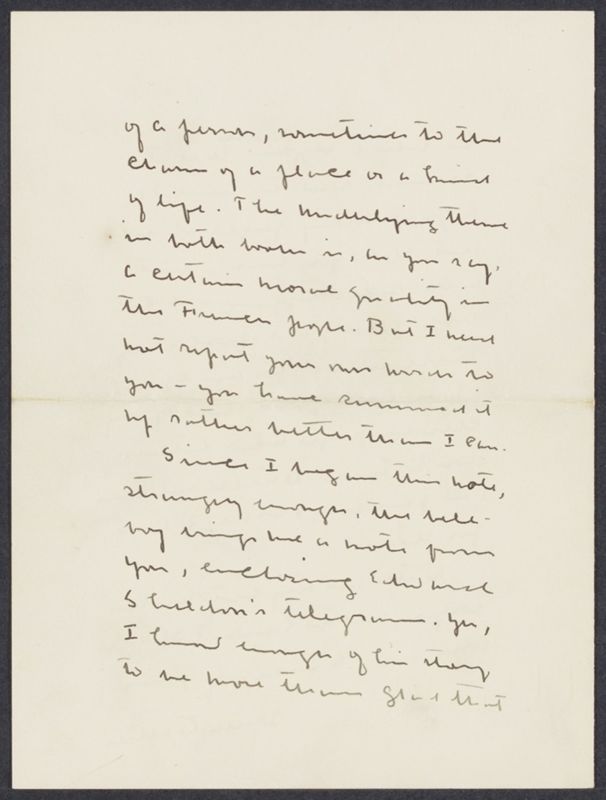 of a person, sometimes to the
charm of a place or a kind
of life. The underlying theme
in both books is, as you say,
a certain moral quality in
the French people. But I need
not repeat your own words to
you – you have summed it
up rather better than I can.
Since I began this note,
strangely enough, the bell-
boy brings me a note from
you, enclosing Edward
Sheldon's telegram. Yes,
I know enough of his story
to be more than glad that